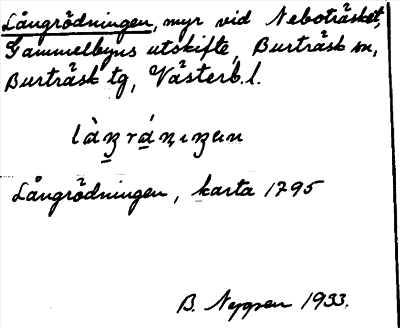 Långrödningen, myr vid Neboträsket,
Gammelbyns utskifte, Burträsk sn,
Burträsk tg, Västerb. l.
Långrödningen, karta 1795
B. 1933.